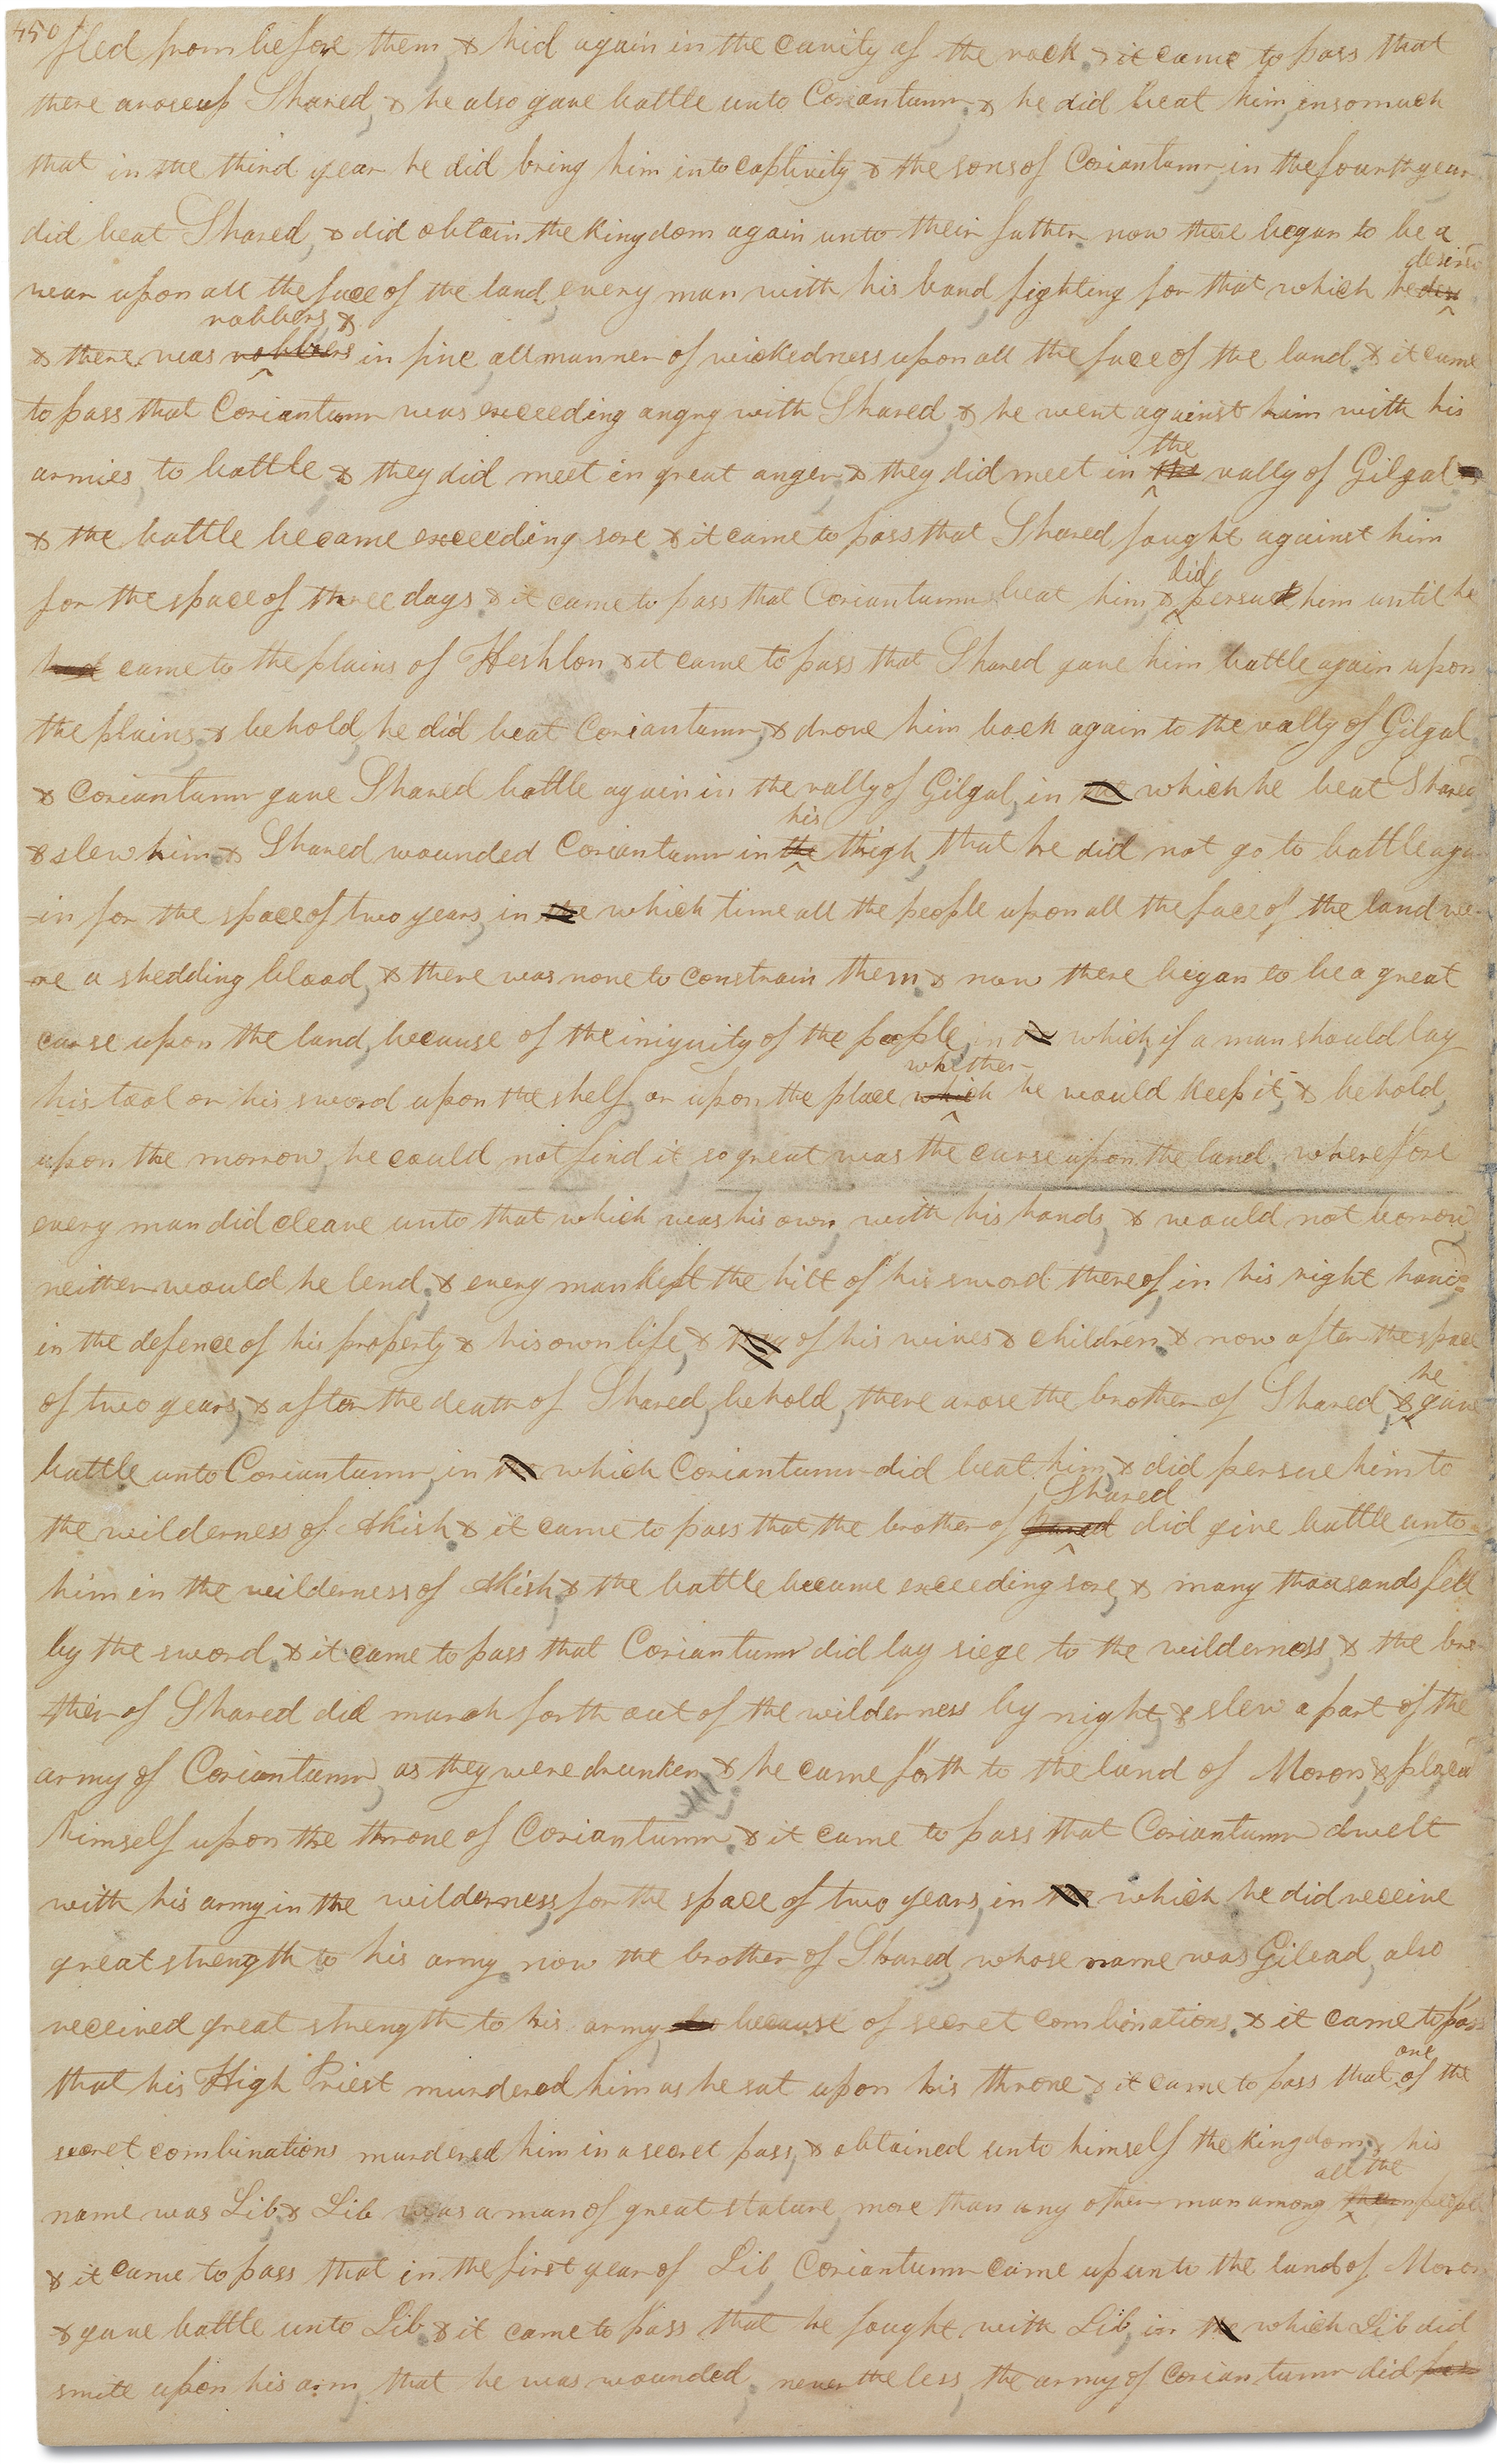 450
fled from before them & hid again in the cavity of the rock. & it came to pass that
there arose up Shared, & he also gave battle unto Coriantumr. & he did beat him, insomuch
that in the third year he did bring him into captivity & the sons of Coriantumr, in the fourth year
did beat Shared, & did obtain the kingdom again unto their father. now there began to be a
desired
war upon all the face of the land, every man with his band, fighting for that which he des
robbers &
& there was robbers in fine, all manner of wickedness upon all the face of the land. & it came
to pass that Coriantumr was exceeding angry with Shared, & he went against him with his
the
armies, to battle & they did meet in great anger. & they did meet in the vally of Gilgal
& the battle became exceeding sore. & it came to pass that Shared fought against him
did
for the space of three days & it came to pass that Coriantumr beat him & persue him until he
had came to the plains of Heshlon. & it came to pass that Shared gave him battle again upon
the plains, & behold, he did beat Coriantumr, & drove him back again to the vally of Gilgal.
& Coriantumr gave Shared battle again in the vally of Gilgal, in the which he beat Shared
his
& slew him. & Shared wounded Coriantumr in the thigh, that he did not go to battle aga
-in for the space of two years, in the which time all the people upon all the face of the land we-
-re a shedding blood, & there was none to constrain them. & now there began to be a great
curse upon the land, because of the iniquity of the people, in the which, if a man should lay
whither
his tool or his sword upon the shelf or upon the place which he would keep it, & behold,
upon the morrow, he could not find it so great was the curse upon the land. wherefore
every man did cleave unto that which was his own, with his hands, & would not borrow,
neither would he lend, & every man kept the hilt of his sword thereof in his right hand,
in the defence of his property & his own life, & they of his wives & children. & now after the space
he
of two years, & after the death of Shared, behold, there arose the brother of Shared, & gave
battle unto Coriantumr, in the which Coriantumr did beat him, & did persue him to
Shared
the wilderness of Akish & it came to pass that the brother of Shared did give battle unto
him in the wilderness of Akish, & the battle became exceeding sore, & many thousands fell
by the sword. & it came to pass that Coriantumr did lay siege to the wilderness, & the bro
-ther of Shared did march forth out of the wilderness by night, & slew a part of the
army of Coriantumr, as they were drunken. & he came forth to the land of Moron, & placed
himself upon the throne of Coriantumr & it came to pass that Coriantumr dwelt
with his army in the wilderness, for the space of two years, in the which he did receive
great strength to his army. now the brother of Shared, whose name was Gilead, also
received great strength to his army because of secret combinations. & it came to pass
one
that his High Priest murdered him as he sat upon his throne & it came to pass that of the
secret combinations murdered him in a secret pass, & obtained unto himself the kingdom. & his
all the
name was Lib. & Lib was a man of great stature, more than any other man among them people
& it came to pass that in the first year of Lib, Coriantumr came up unto the land of Moron
& gave battle unto Lib. & it came to pass that he fought with Lib, in the which Lib did
smite upon his arm, that he was wounded. nevertheless, the army of Coriantumr did pres